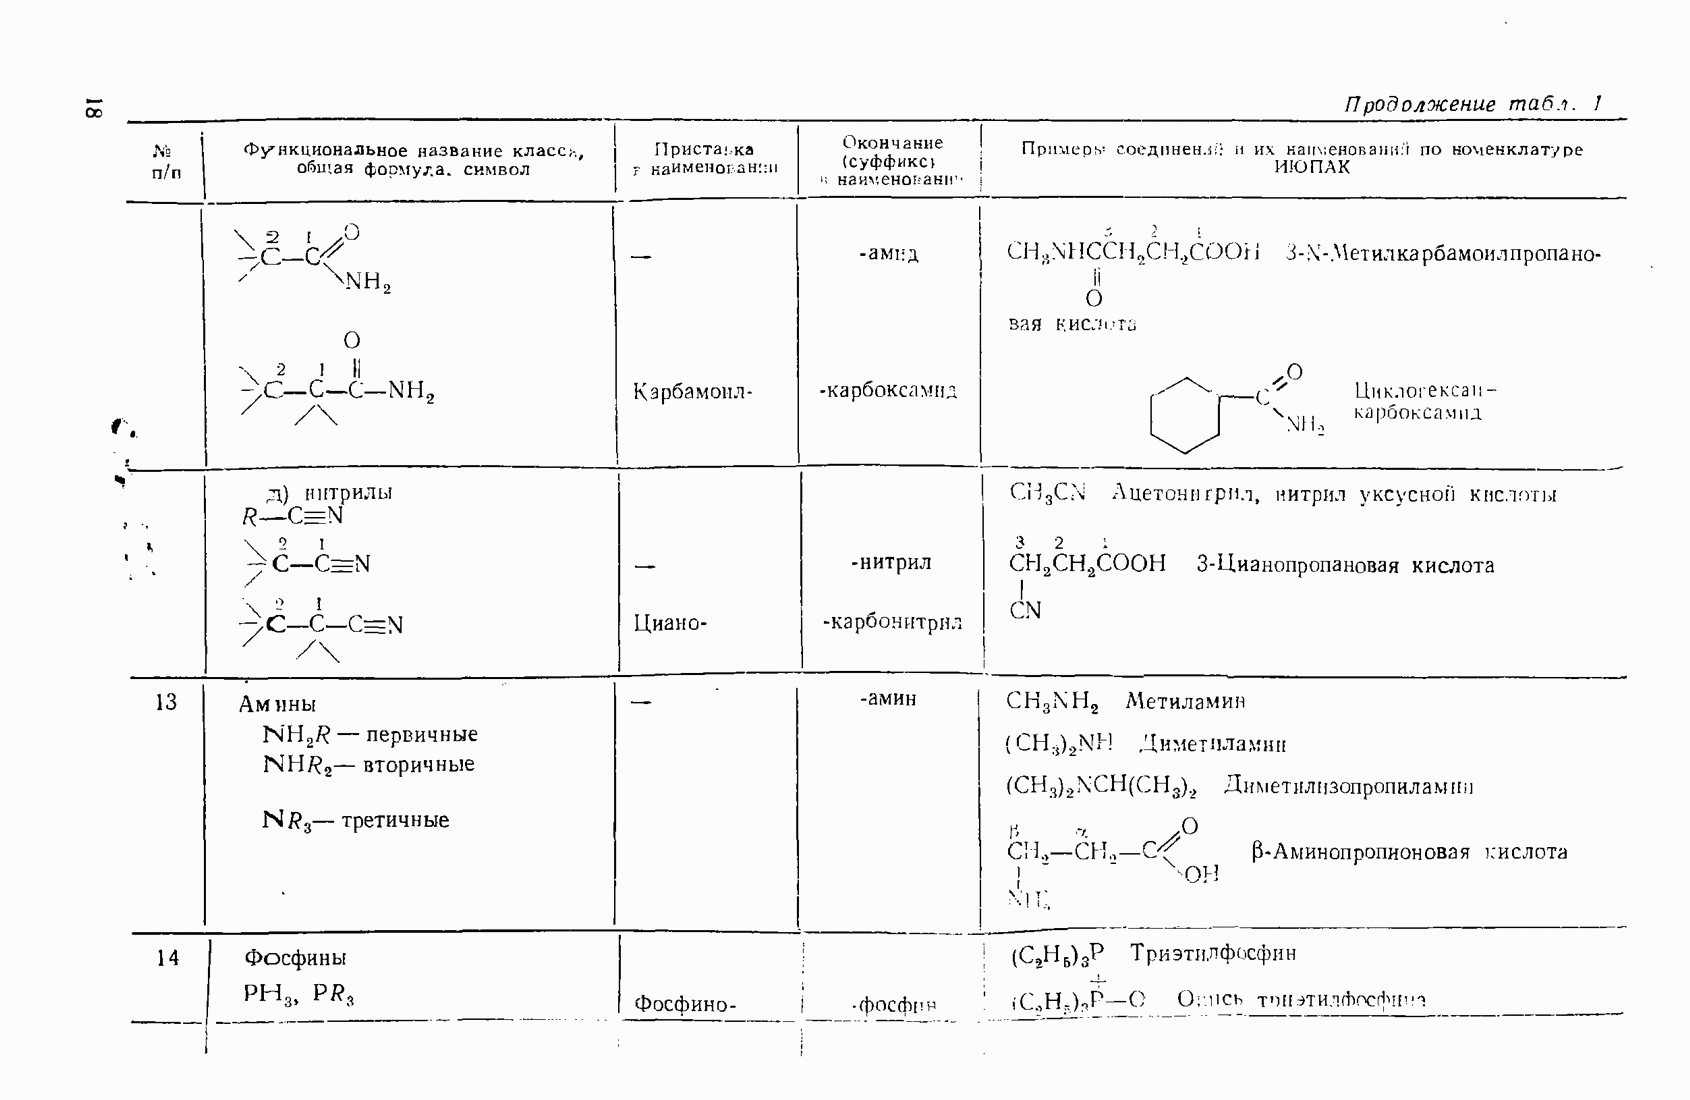 18
Продолжение табл. 1
№ п/п
Функциональное название класса,
общая формула, символ
Приставка
в наименовании
Окончание
(суффикс)
в наименовании
Примеры соединений и их наименований по номенклатуре
ИЮПАК
2 1 O
C—C
NH2
—
-амид
3 2 1
CH3NHCCH2CH2COOH 3-N-Метилкарбамоилпропано-
O
вая кислота
O
2 1
C—C—C—NH2
Карбамоил-
-карбоксамид
O
C
NH2
Циклогексан-
карбоксамид
д) нитрилы
R—C≡N
2 1
C—C≡N
—
-нитрил
2 1
C—C—C≡N
Циано-
-карбонитрил
CH3CN Ацетонитрил, нитрил уксусной кислоты
3 2 1
CH2CH2COOH 3-Цианопропановая кислота
CN
13
Амины
—
-амин
NH2R — первичные
NHR2— вторичные
NR3— третичные
CH3NH2 Метиламин
(CH3)2NH Диметиламин
(CH3)2NCH(CH3)2 Диметилизопропиламин
β α O
CH2—CH2—C β-Аминопропионовая кислота
OH
NH2
14
Фосфины
PH3, PR3
Фосфино-
-фосфин
(C2H5)3P Триэтилфосфин
(C2H5)3P—O Окись триэтилфосфина